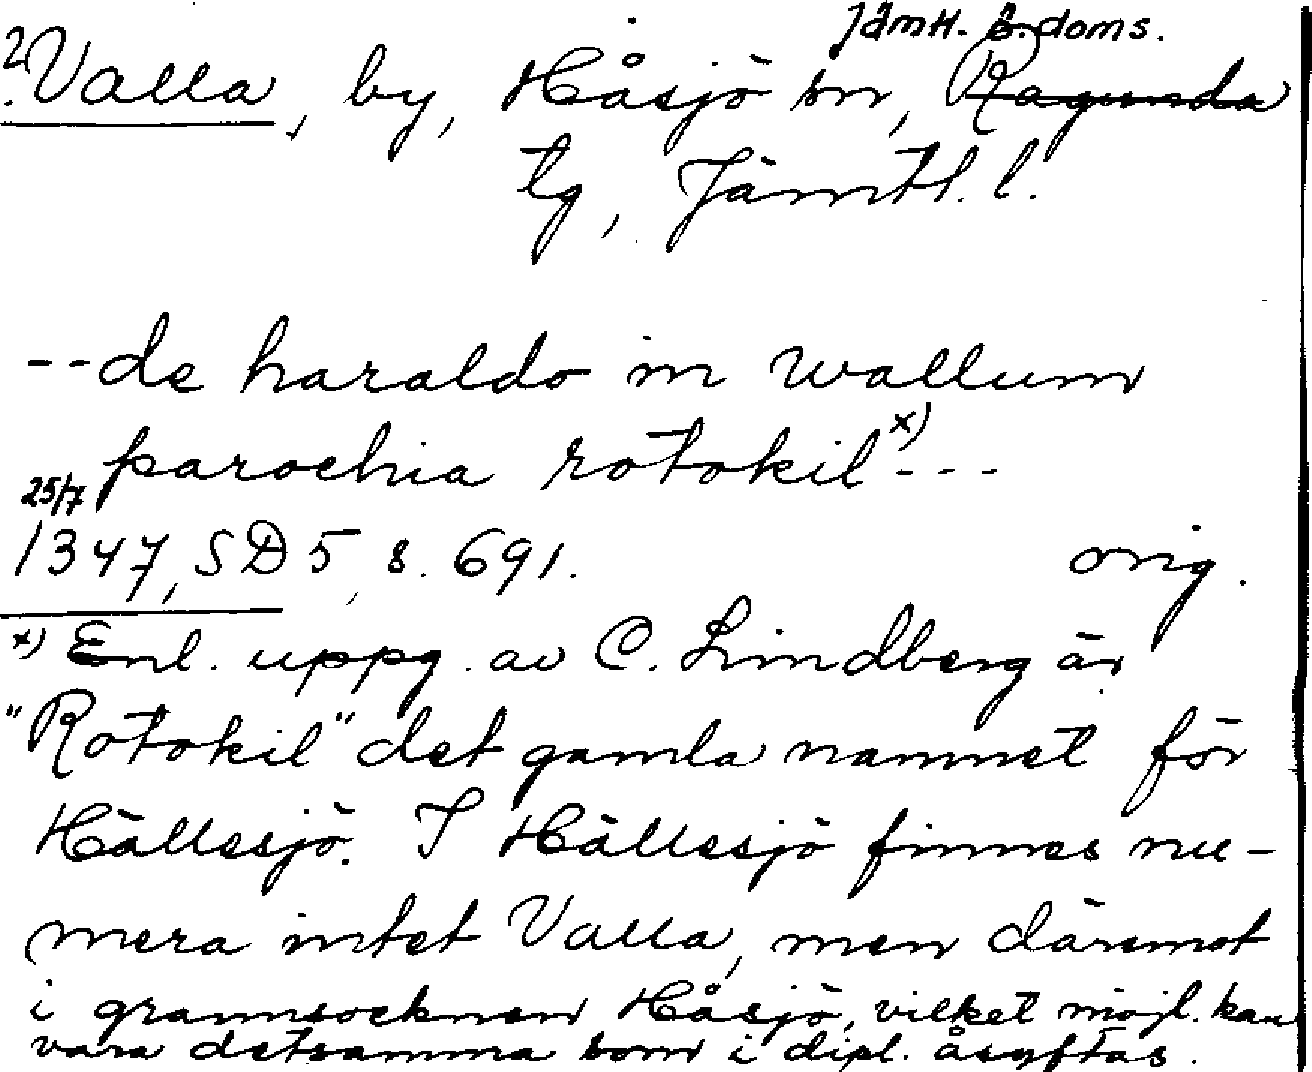 Jämtl. ö. doms.
? Valla, by, Håsjö sn, Ragunda
tg, Jämtl. l.
-- de haraldo in wallum
parochia rotokil x) ---
25/7
1347, SD 5, s. 691. orig.
x) Enl. uppg. av C. Lindberg är
"Rotokil" det gamla namnet för
Hällesjö. I Hällesjö finnes nu-
mera intet Valla, men däremot
i grannsocknen Håsjö, vilket möjl. kan
vara detsamma som i dipl. åsyftas.